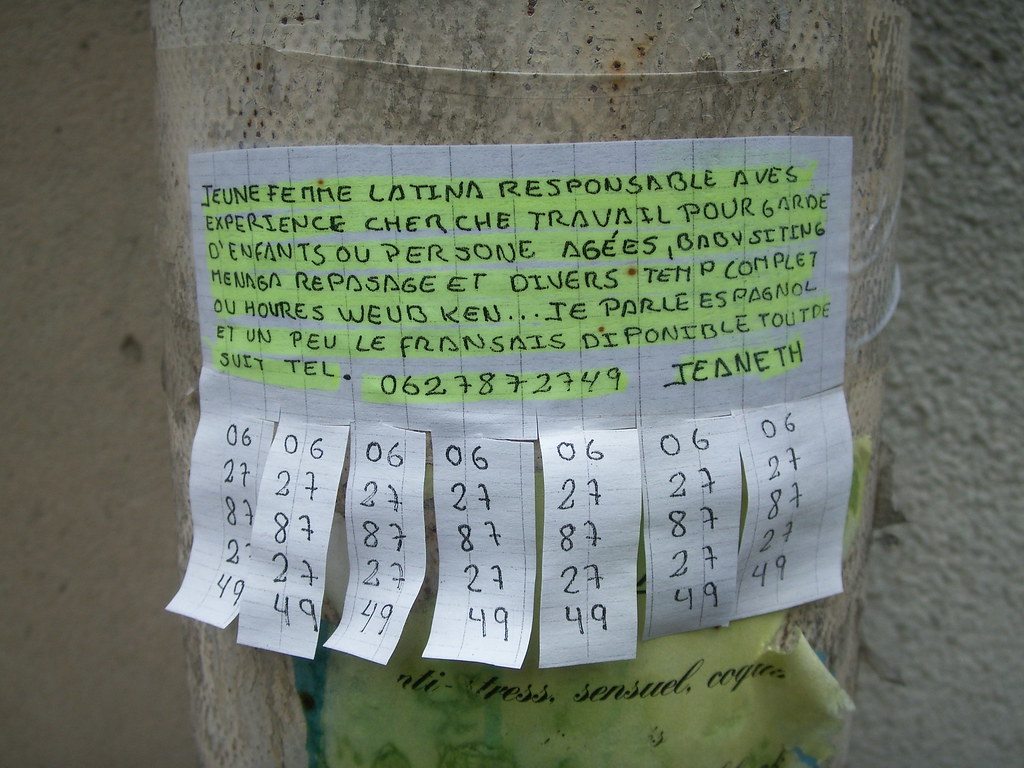 JEUNE FEMME LATINA RESPONSABLE AVES
EXPERIENCE CHERCHE TRAVAIL POUR GARDE
D'ENFANTS OU PERSONE AGÉES, BABY SITING
MENAGA REPASAGE ET DIVERS TEMP COMPLET
OU HOURES WEUB KEN... JE PARLE ESPAGNOL
ET UN PEU LE FRANSAIS DIPONIBLE TOUTDE
SUIT TEL. 0627872749 JEANETH
06
27
87
27
49
06
27
87
27
49
06
27
87
27
49
06
27
87
27
49
06
27
87
27
49
06
27
87
27
49
06
27
87
27
49
nti-stress, sensuel, coqu